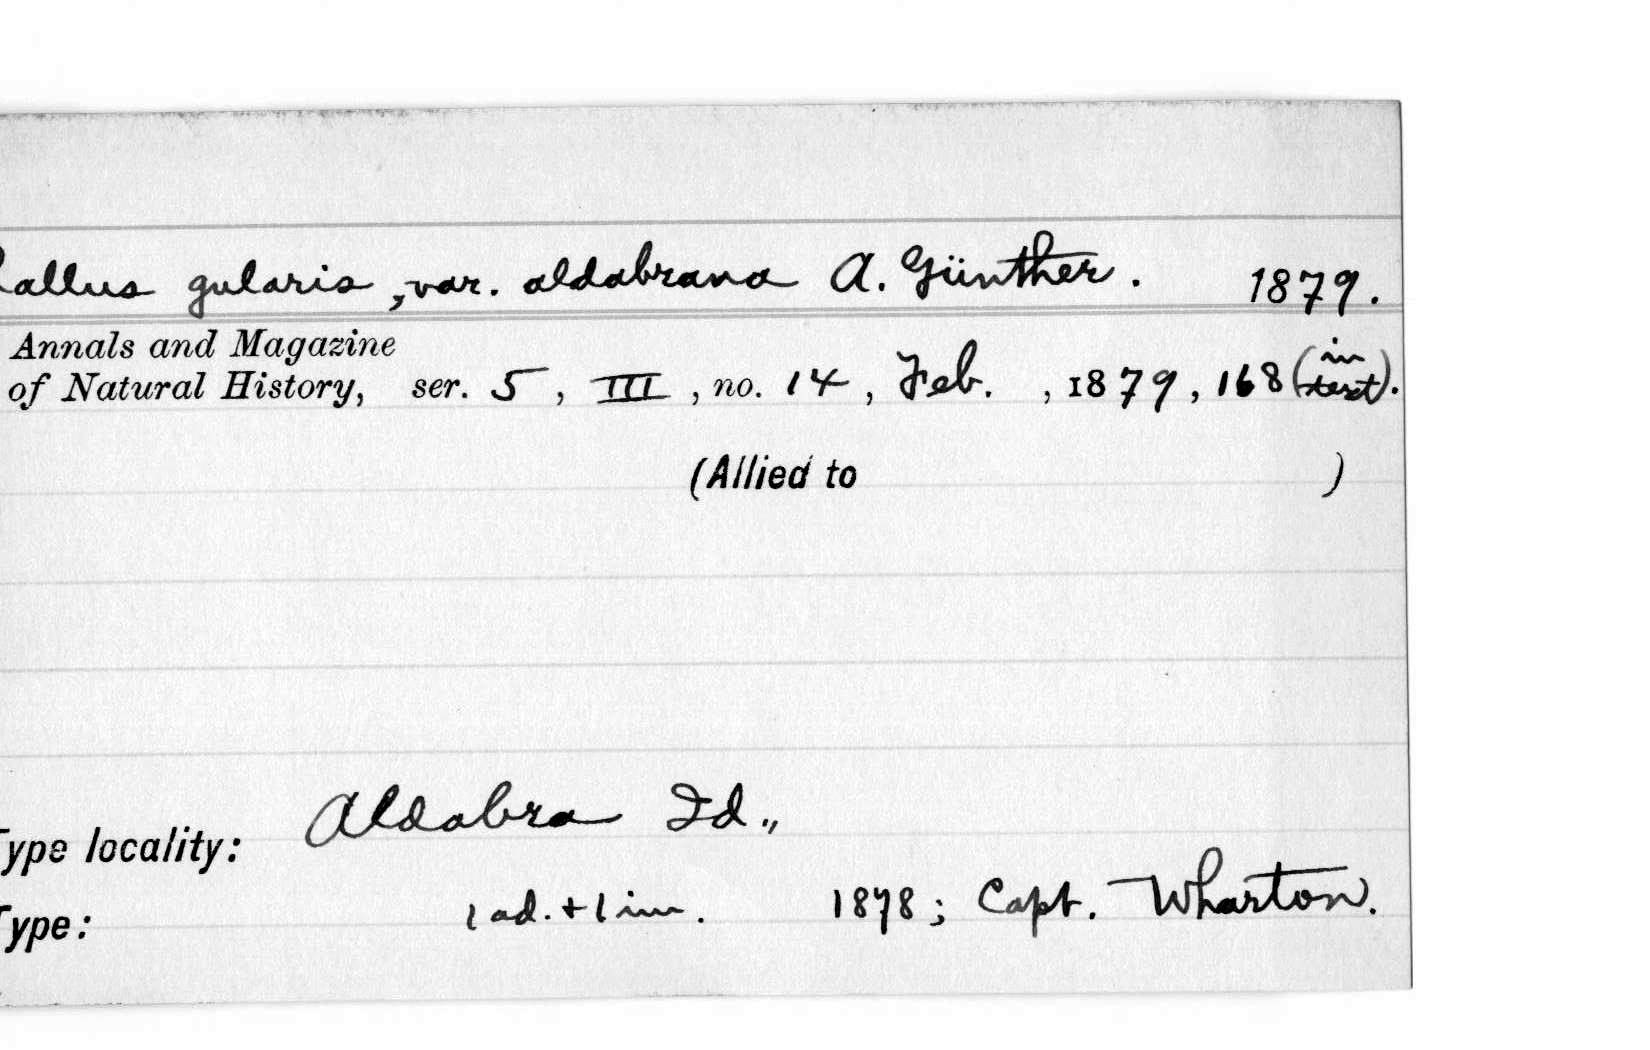 allus gularis, var. aldabrana A. Günther. 1879.
Annals and Magazine
of Natural History, ser. 5, III, no. 14, Feb. , 1879, 168 (in text).
(Allied to )
Type locality: Aldabra Id.,
Type: 1 ad. + 1 im. 1878; Capt. Wharton.